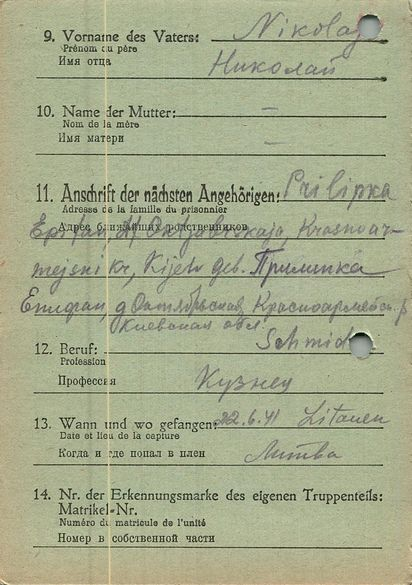 9. Vorname des Vaters: Nikolaj
Prénom du père
Имя отца Николай
10. Name der Mutter: —
Nom de la mère
Имя матери —
11. Anschrift der nächsten Angehörigen: Prilipka
Adresse de la famille du prisonnier
Адрес ближайших родственников
Epifan, Oktjabrskaja, Krasnoar-
mejski kr, Kijew geb. Прилипка
Епифан, д Октябрьская, Красноармейск. р
Киевская обл.
12. Beruf: Schmid
Profession
Профессия Кузнец
13. Wann und wo gefangen: 22.6.41 Litauen
Date et lieu de la capture
Когда и где попал в плен Литва
14. Nr. der Erkennungsmarke des eigenen Truppenteils:
Matrikel-Nr.
Numéro du matricule de l'unité
Номер в собственной части